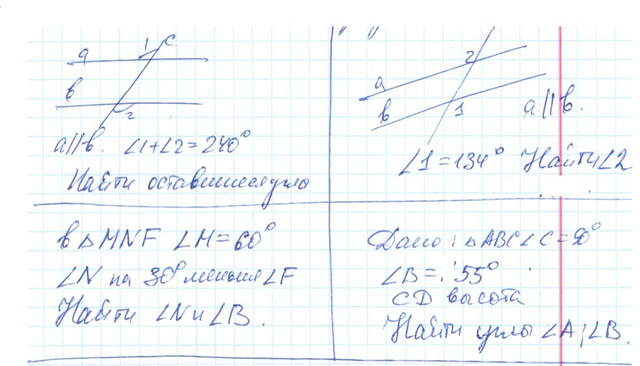 1 c
a
b
2
a||b. ∠1+∠2=240°
Найти оставшиеся углы
2
a
b
1
a||b.
∠1=134° Найти ∠2
в △MNF ∠M=60°
∠N на 30° меньше ∠F
Найти ∠N и ∠B.
Дано: △ABC ∠C=90°
∠B=55°
CD высота
Найти углы ∠A; ∠B.